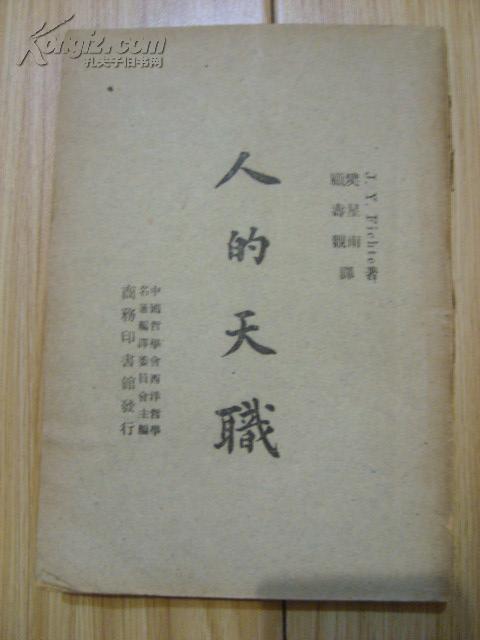 Kongfz.com
孔夫子旧书网
J. Y. Fichte著
樊星南
顧壽觀 譯
人的天職
中國哲學會西洋哲學
名著編譯委員會主編
商務印書館發行